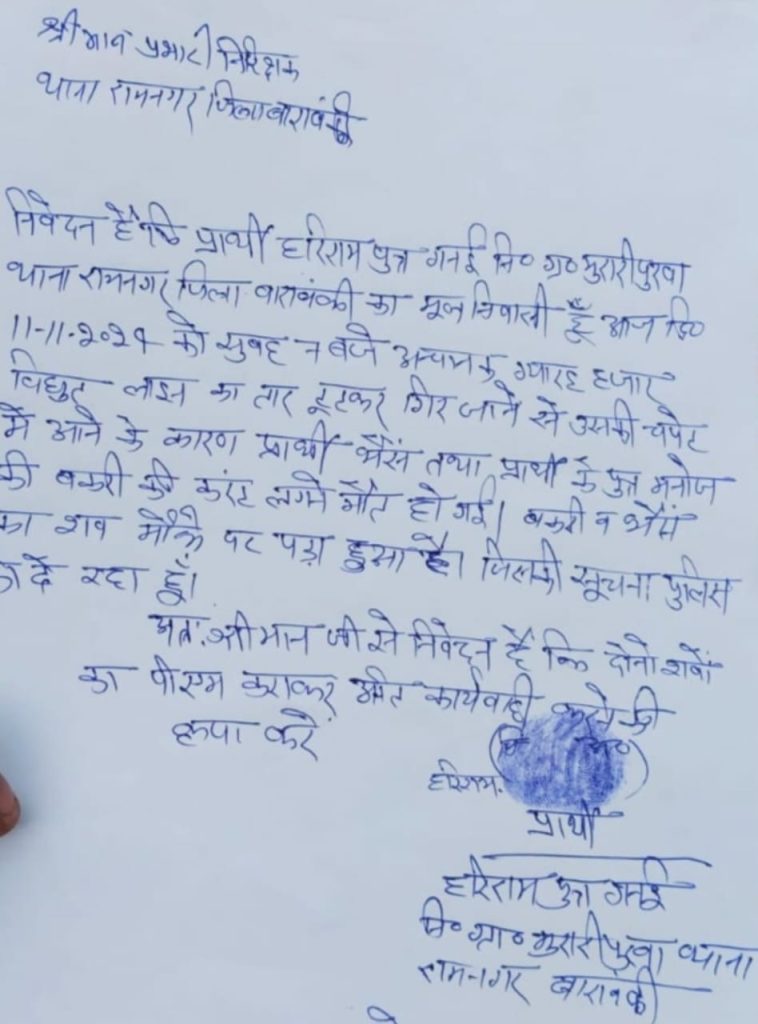 श्रीमान प्रभारी निरिक्षक
थाना रामनगर जिला बाराबंकी
निवेदन है कि प्रार्थी हरिराम पुत्र गनई नि० ग्रा० मुरारीपुरवा
थाना रामनगर जिला बाराबंकी का मूल निवासी हूँ आज दि०
11-11-२०२४ को सुबह 7 बजे अचानक ग्यारह हजार
विद्युत लाइन का तार टूटकर गिर जाने से उसकी चपेट
में आने के कारण प्रार्थी भैंस तथा प्रार्थी के पुत्र मनोज
की बकरी की करंट लगने मौत हो गई। बकरी व भैंस
का शव मौके पर पड़ा हुआ है। जिसकी सूचना पुलिस
को दे रहा हूँ।
अतः श्रीमान जी से निवेदन है कि दोनो शवों
का पीएम कराकर कार्यवाही करने की
कृपा करें
हरिराम
प्रार्थी
हरिराम पुत्र गनई
नि० ग्रा० मुरारीपुरवा थाना
रामनगर बाराबंकी